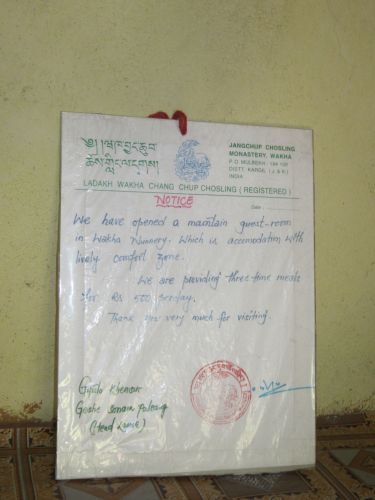 ༄༅། །ཝ་ཁ་བྱང་ཆུབ་
ཆོས་གླིང་ལ་དྭགས།
JANGCHUP CHOSLING
MONASTERY, WAKHA
P.O MULBEKH - 194 109
DISTT. KARGIL (J & K)
INDIA
LADAKH WAKHA CHANG CHUP CHOSLING (REGISTERED)
NOTICE
Date
We have opened a maintain guest-room
in Wakha Nunnery. Which is accomodation with
lively comfort zone.
We are providing three time meals
for Rs 500 perday.
Thank you very much for visiting.
Gyuto Khensur
Geshe Sonam
(Head Lama)